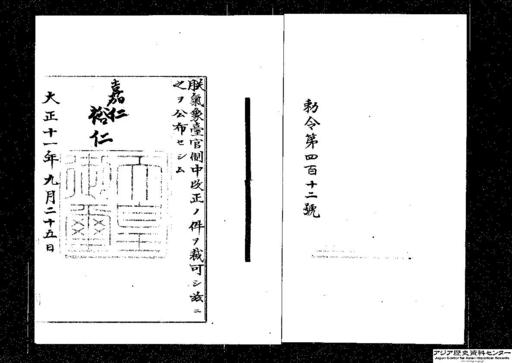 勅令第四百十二號
朕氣象臺官制中改正ノ件ヲ裁可シ茲ニ
之ヲ公布セシム
嘉仁
裕仁
大正十一年九月二十五日
アジア歴史資料センター
Japan Center for Asian Historical Records